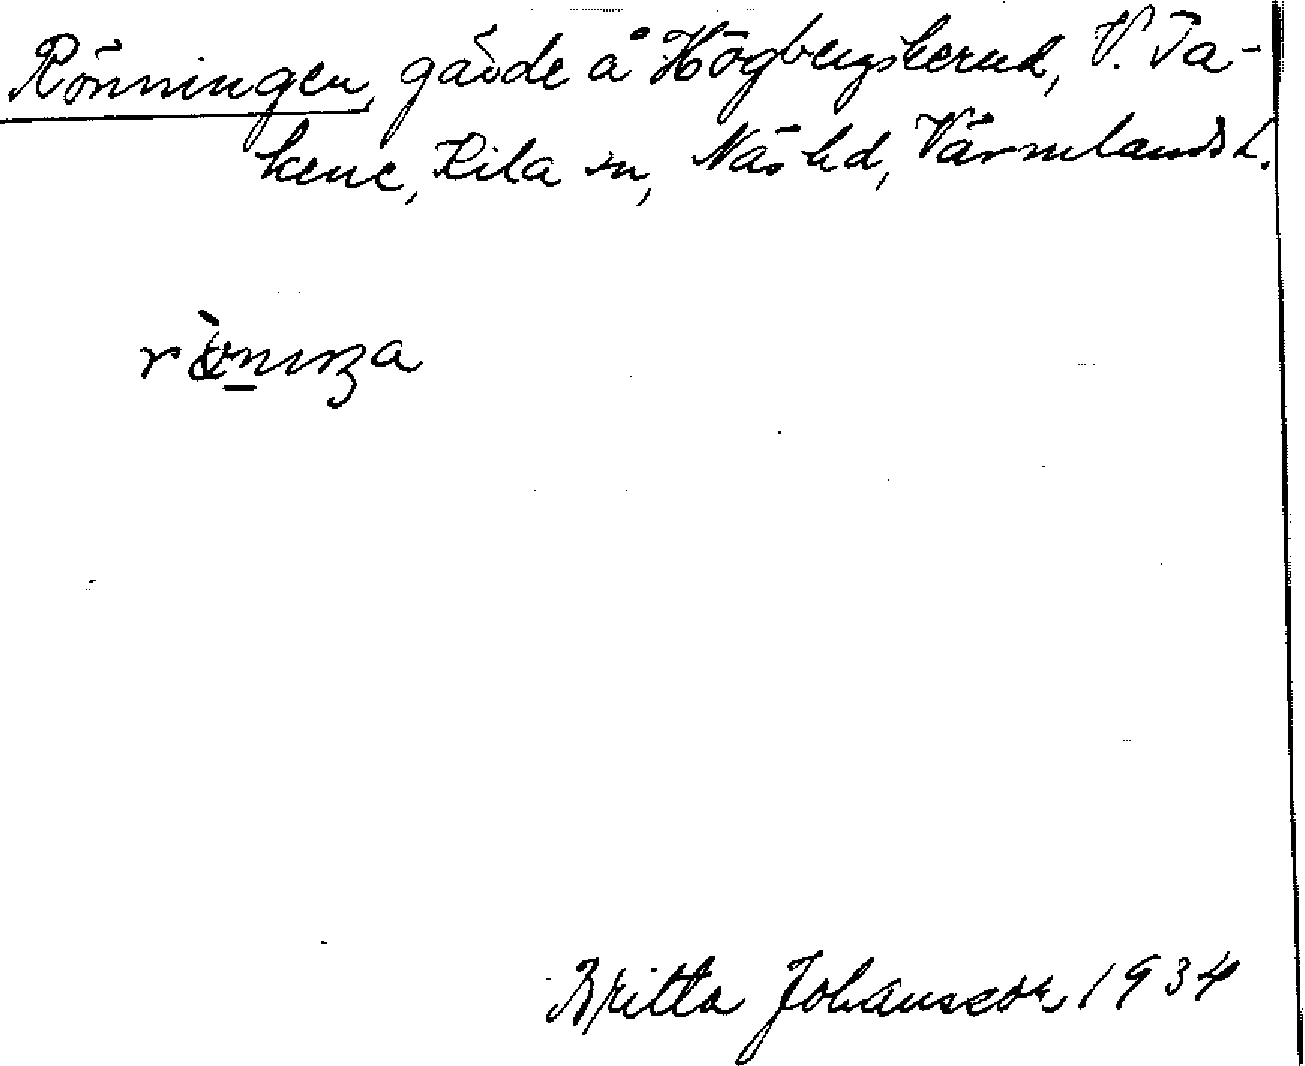 Rönningen, gärde å Högbergskerud, V. Ta-
kene, Kila sn, Näs hd, Värmlands L.
Britta Johansson 1934